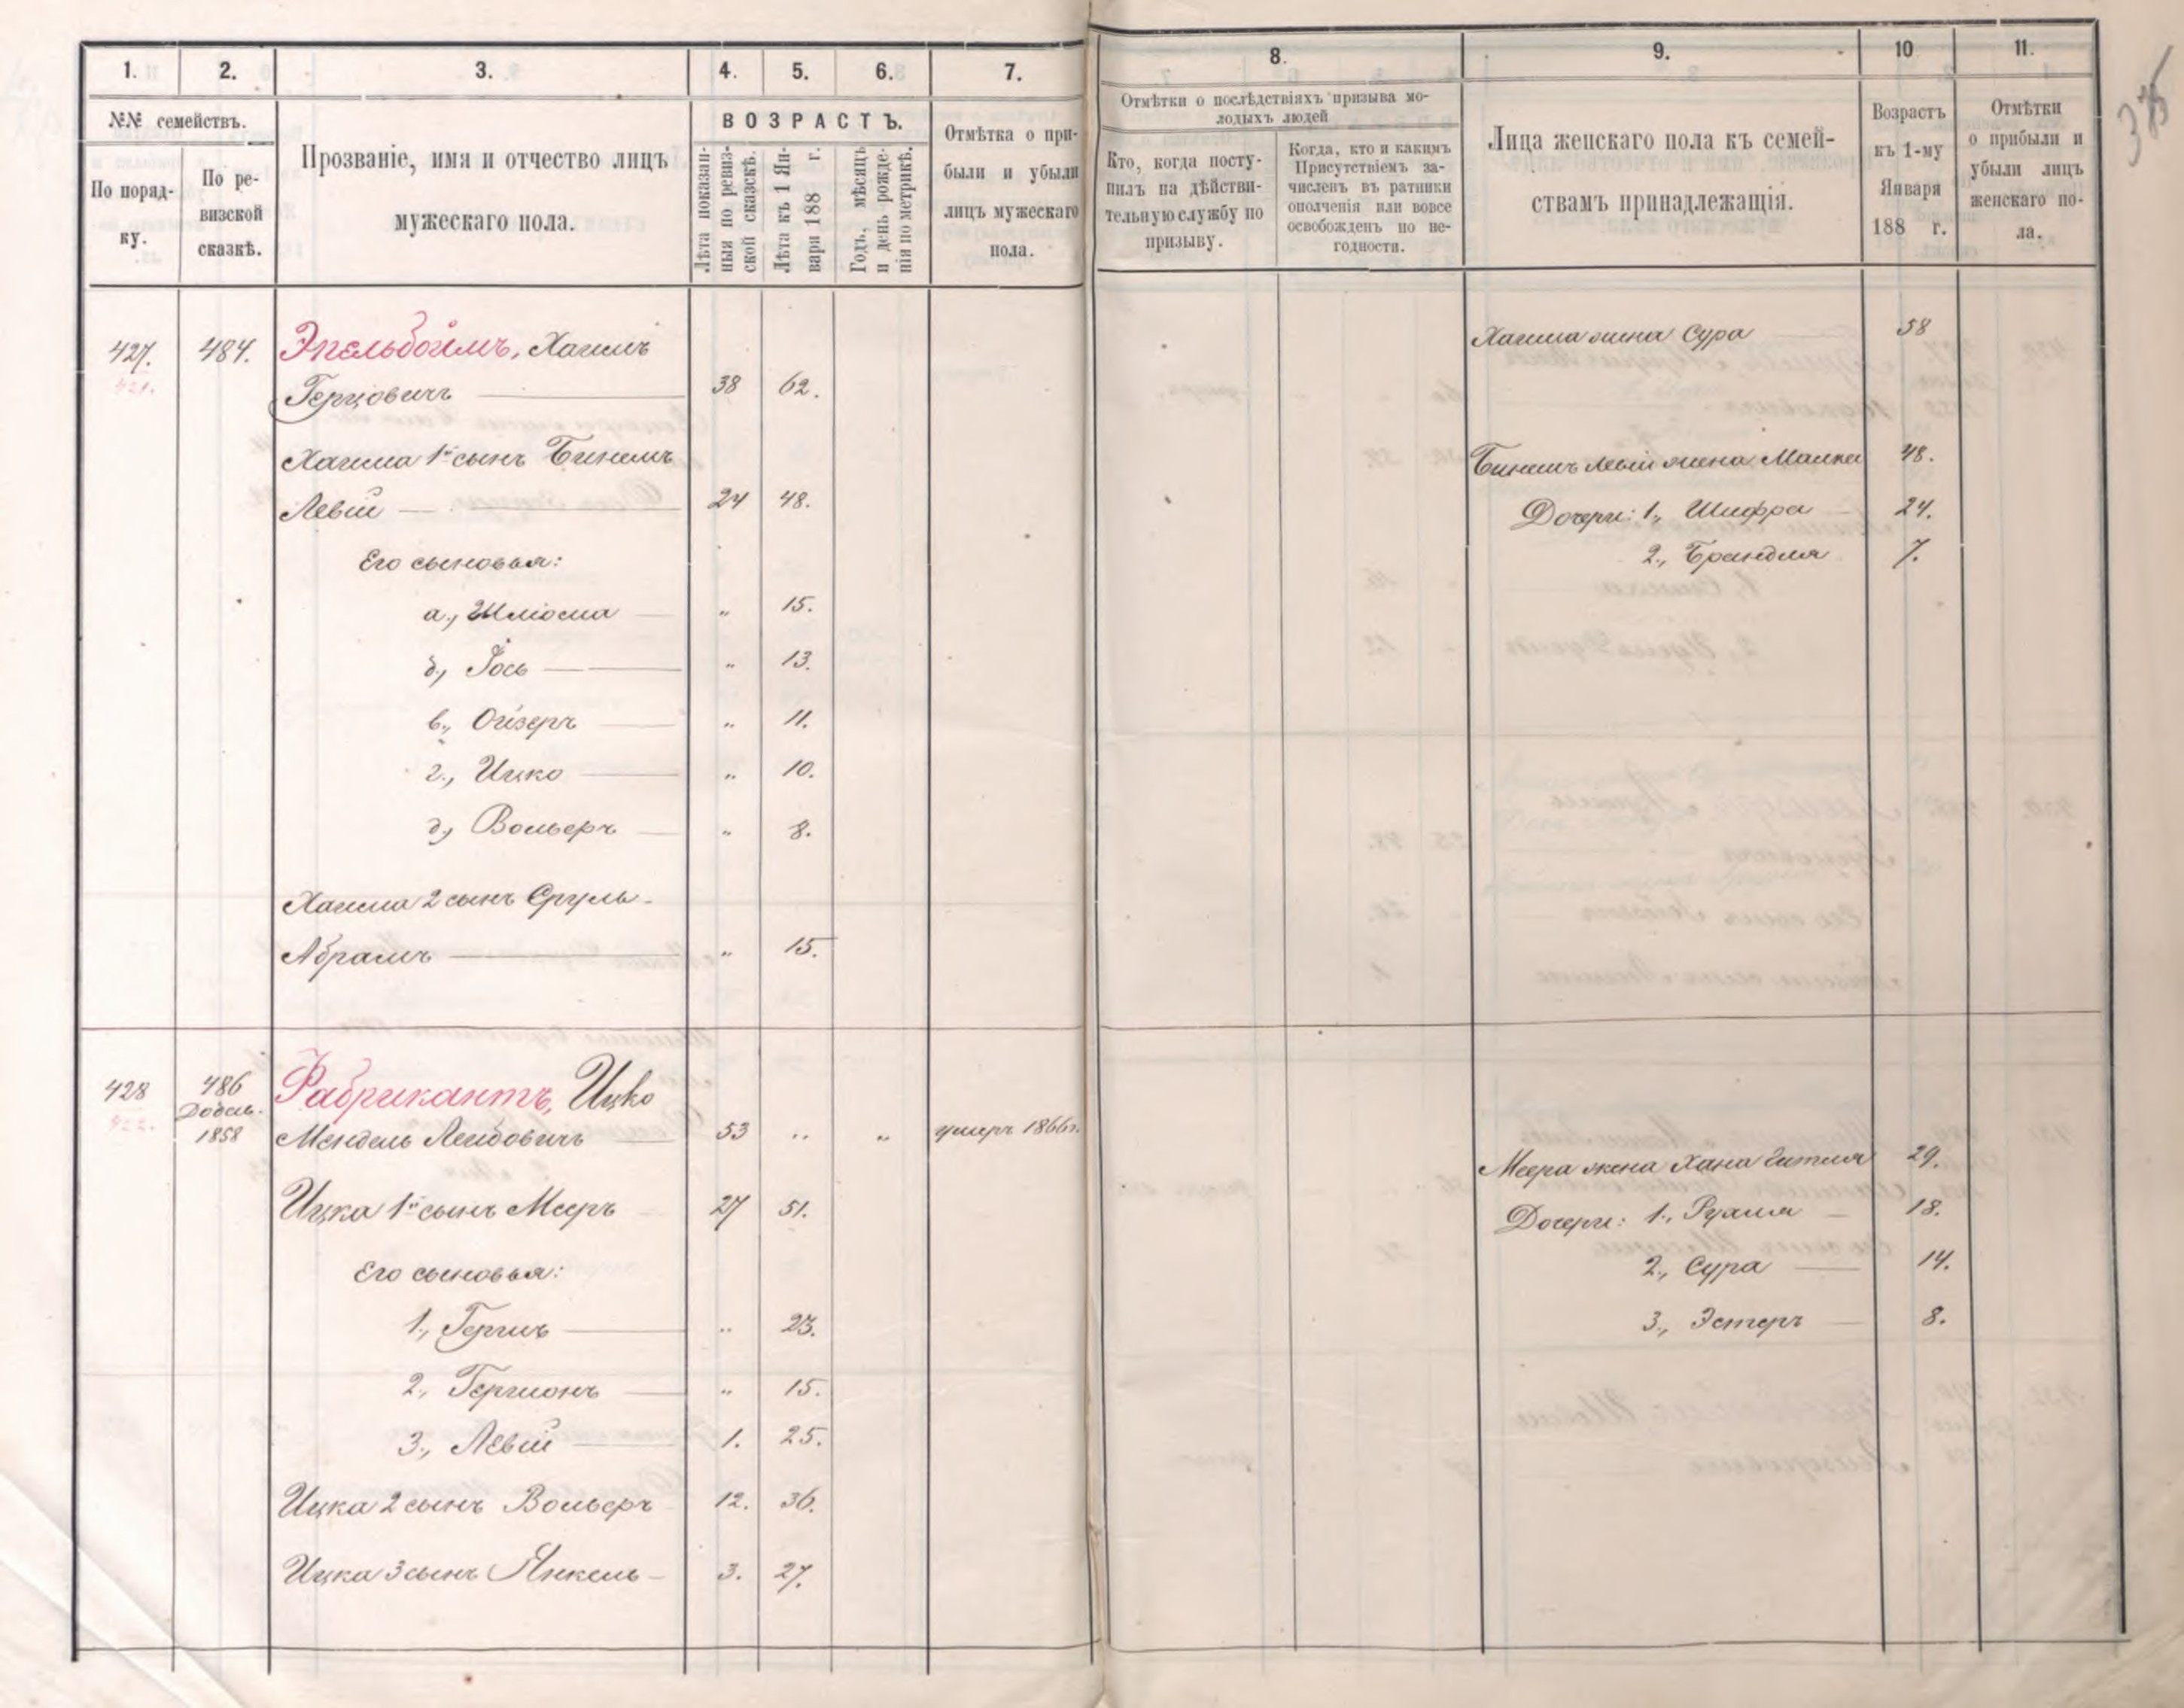 1. 2. 3. 4. 5. 6. 7.
№№ семействъ.
По поряд-
ку.
По ре-
визской
сказкѣ.
Прозваніе, имя и отчество лицъ
мужескаго пола.
ВОЗРАСТЪ.
Лѣта показан-
ныя по ревиз-
ской сказкѣ.
Лѣта къ 1 Ян-
варя 188 г.
Годъ, мѣсяцъ
и день рожде-
нія по метрикѣ.
Отмѣтка о при-
были и убыли
лицъ мужескаго
пола.
427. 484. Эпельбоймъ, Хаимъ
421.
Герцовичъ 38 62.
Хаима 1й сынъ Бинемъ
Левій 24 48.
Его сыновья:
а., Шліома „ 15.
б., Іось „ 13.
в., Ойзеръ „ 11.
г., Ицко „ 10.
д., Вольверъ „ 8.
Хаима 2 сынъ Сруль-
Абрамъ „ 15.
428 486 Фабрикантъ, Ицко
422. Добав.
1858 Мендель Лейбовичъ 53 „ „ умеръ 1866г.
Ицка 1й сынъ Мееръ 27 51.
Его сыновья:
1., Гершъ „ 23.
2., Гершонъ „ 15.
3., Левій 1. 25.
Ицка 2 сынъ Вольверъ 12. 36.
Ицка 3 сынъ Янкель 3. 27.
8. 9. 10 11.
Отмѣтки о послѣдствіяхъ призыва мо-
лодыхъ людей
Кто, когда посту-
пилъ на дѣйстви-
тельную службу по
призыву.
Когда, кто и какимъ
Присутствіемъ за-
численъ въ ратники
ополченія или вовсе
освобожденъ по не-
годности.
Лица женскаго пола къ семей-
ствамъ принадлежащія.
Возрастъ
къ 1-му
Января
188 г.
Отмѣтки
о прибыли и
убыли лицъ
женскаго по-
ла.
375
Хаима жена Сура 58
Бинемъ Левія жена Малка 48.
Дочери: 1., Шифра 24.
2., Брандля 7.
Меера жена Хана Гитля 29.
Дочери: 1., Рухля 18.
2., Сура 14.
3., Эстеръ 8.